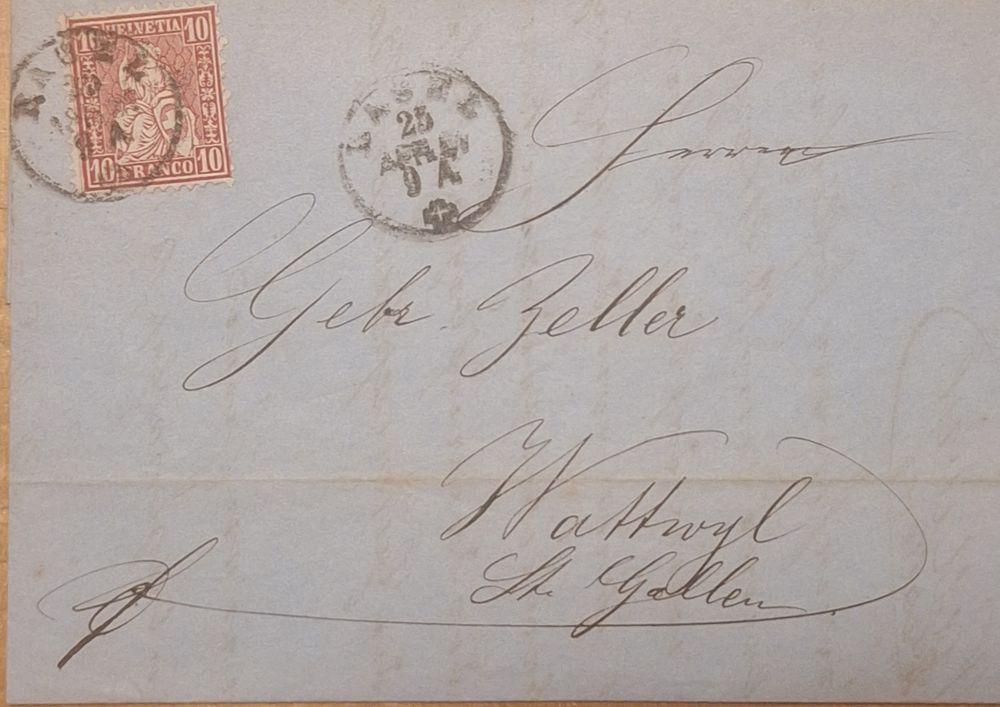 10 HELVETIA 10
10 FRANCO 10
BASEL
BASEL
25
9 A
Herren
Gebr. Zeller
Wattwyl
St. Gallen